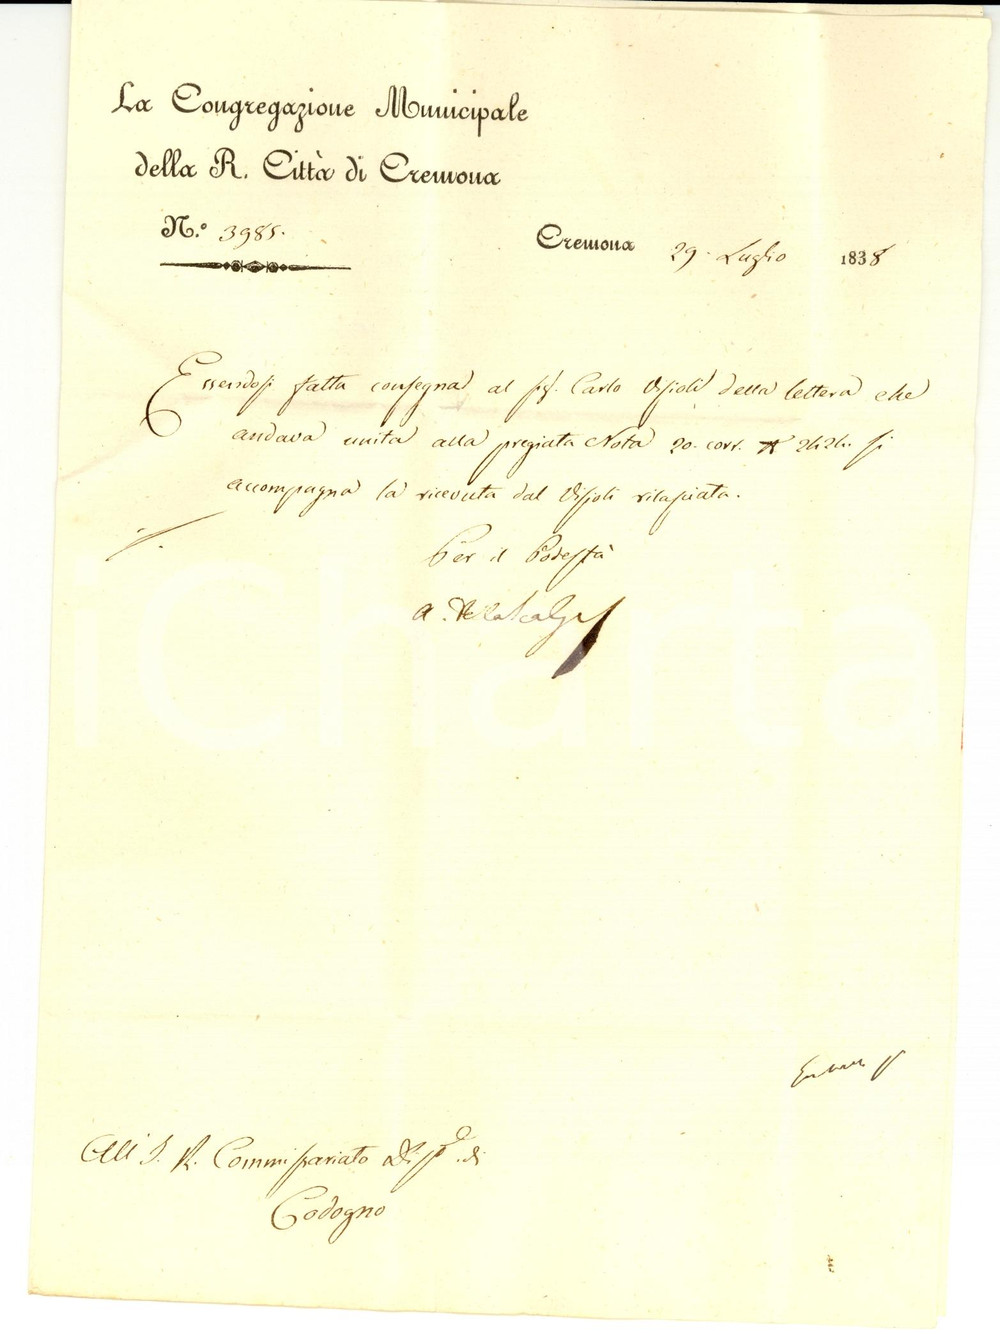 La Congregazione Municipale
della R. Città di Cremona
N.° 3985.
Cremona 29. Luglio 1838
Essendosi fatta consegna al Sig. Carlo Visioli della lettera che
andava unita alla pregiata Nota 20. corr. N 2424. si
accompagna la ricevuta dal Visioli rilasciata.
Per il Podestà
iCharta
All' I. R. Commissariato Dist.e di
Codogno